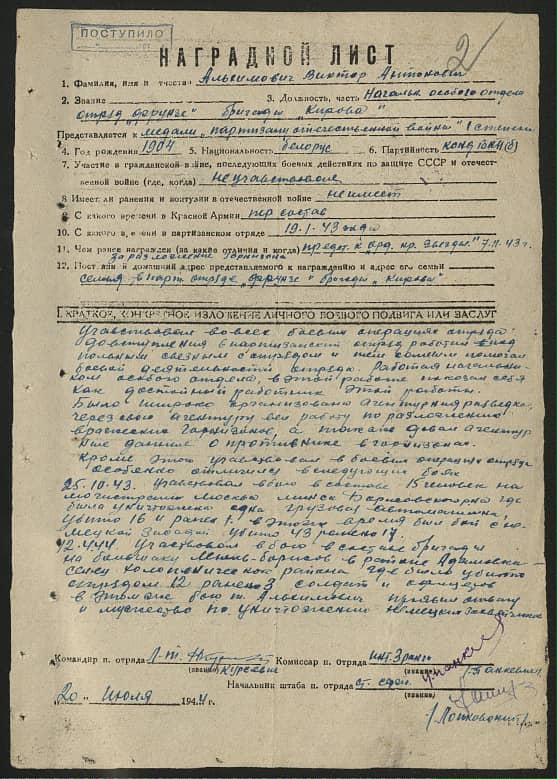 ПОСТУПИЛО
2
НАГРАДНОЙ ЛИСТ
1. Фамилия, имя и отчество Альхимович Виктор Антонович
2. Звание 3. Должность, часть Начальн. особого отдела
отряд „Фрунзе" бригады „Кирова"
Представляется к медали „партизану отечественной войны" I степени
4. Год рождения 1904 5. Национальность белорус 6. Партийность канд ВКП(б)
7. Участие в гражданской войне, последующих боевых действиях по защите СССР и отечест-
венной войне (где, когда) не участвовал
8. Имеет ли ранения и контузии в отечественной войне не имеет
9. С какого времени в Красной Армии пер состав
10. С какого времени в партизанском отряде 19.1-43 года
11. Чем ранее награжден (за какие отличия и когда) предст. к „орд. кр. Звезды" 7.11-43 г.
за разложение гарнизона
12. Постоянный домашний адрес представляемого к награждению и адрес его семьи
семья в парт. отряде „Фрунзе" бригады „Кирова"
I. КРАТКОЕ, КОНКРЕТНОЕ ИЗЛОЖЕНИЕ ЛИЧНОГО БОЕВОГО ПОДВИГА ИЛИ ЗАСЛУГ
Участвовал во всех боевых операциях отряда.
До вступления в партизанский отряд работал в под
польным связным с отрядом и тем самым помогал
боевой деятельности отряда. Работая начальни-
ком особого отдела, в этой работе показал себя
как достойный работник этой работы.
Было широко организована агентурная разведка,
через свою агентуру вел работу по разложению
вражеских гарнизонов, а также давал агентур
ные данные о противнике в гарнизонах.
Кроме этого участвовал в боевых операциях отряда
особенно отличился в следующих боях
25.10.43. Участвовал в бою в составе 15 человек на
магистрали Москва Минск Борисовского р-на где
была уничтожена одна грузовая автомашина,
убито 16 и ранен 1. в этоже время был бой с не
мецкой засадой убито 43 ранено 17.
12.4.44 Участвовал в бою в составе бригады
на большаку Лепель-Борисов в районе
Холопенического района где было убито
отрядом 12 ранено 3 солдат и офицеров
в этом же бою т. Альхимович проявил отвагу
и мужество по уничтожению немецких захватчиков
Командир п. отряда Л-т. Комиссар п. отряда инт. 3 ранга
(звание) /Курсевич (звание)
Начальник штаба п. отряда ст. сер.
(звание)
„20" Июля 1944 г.